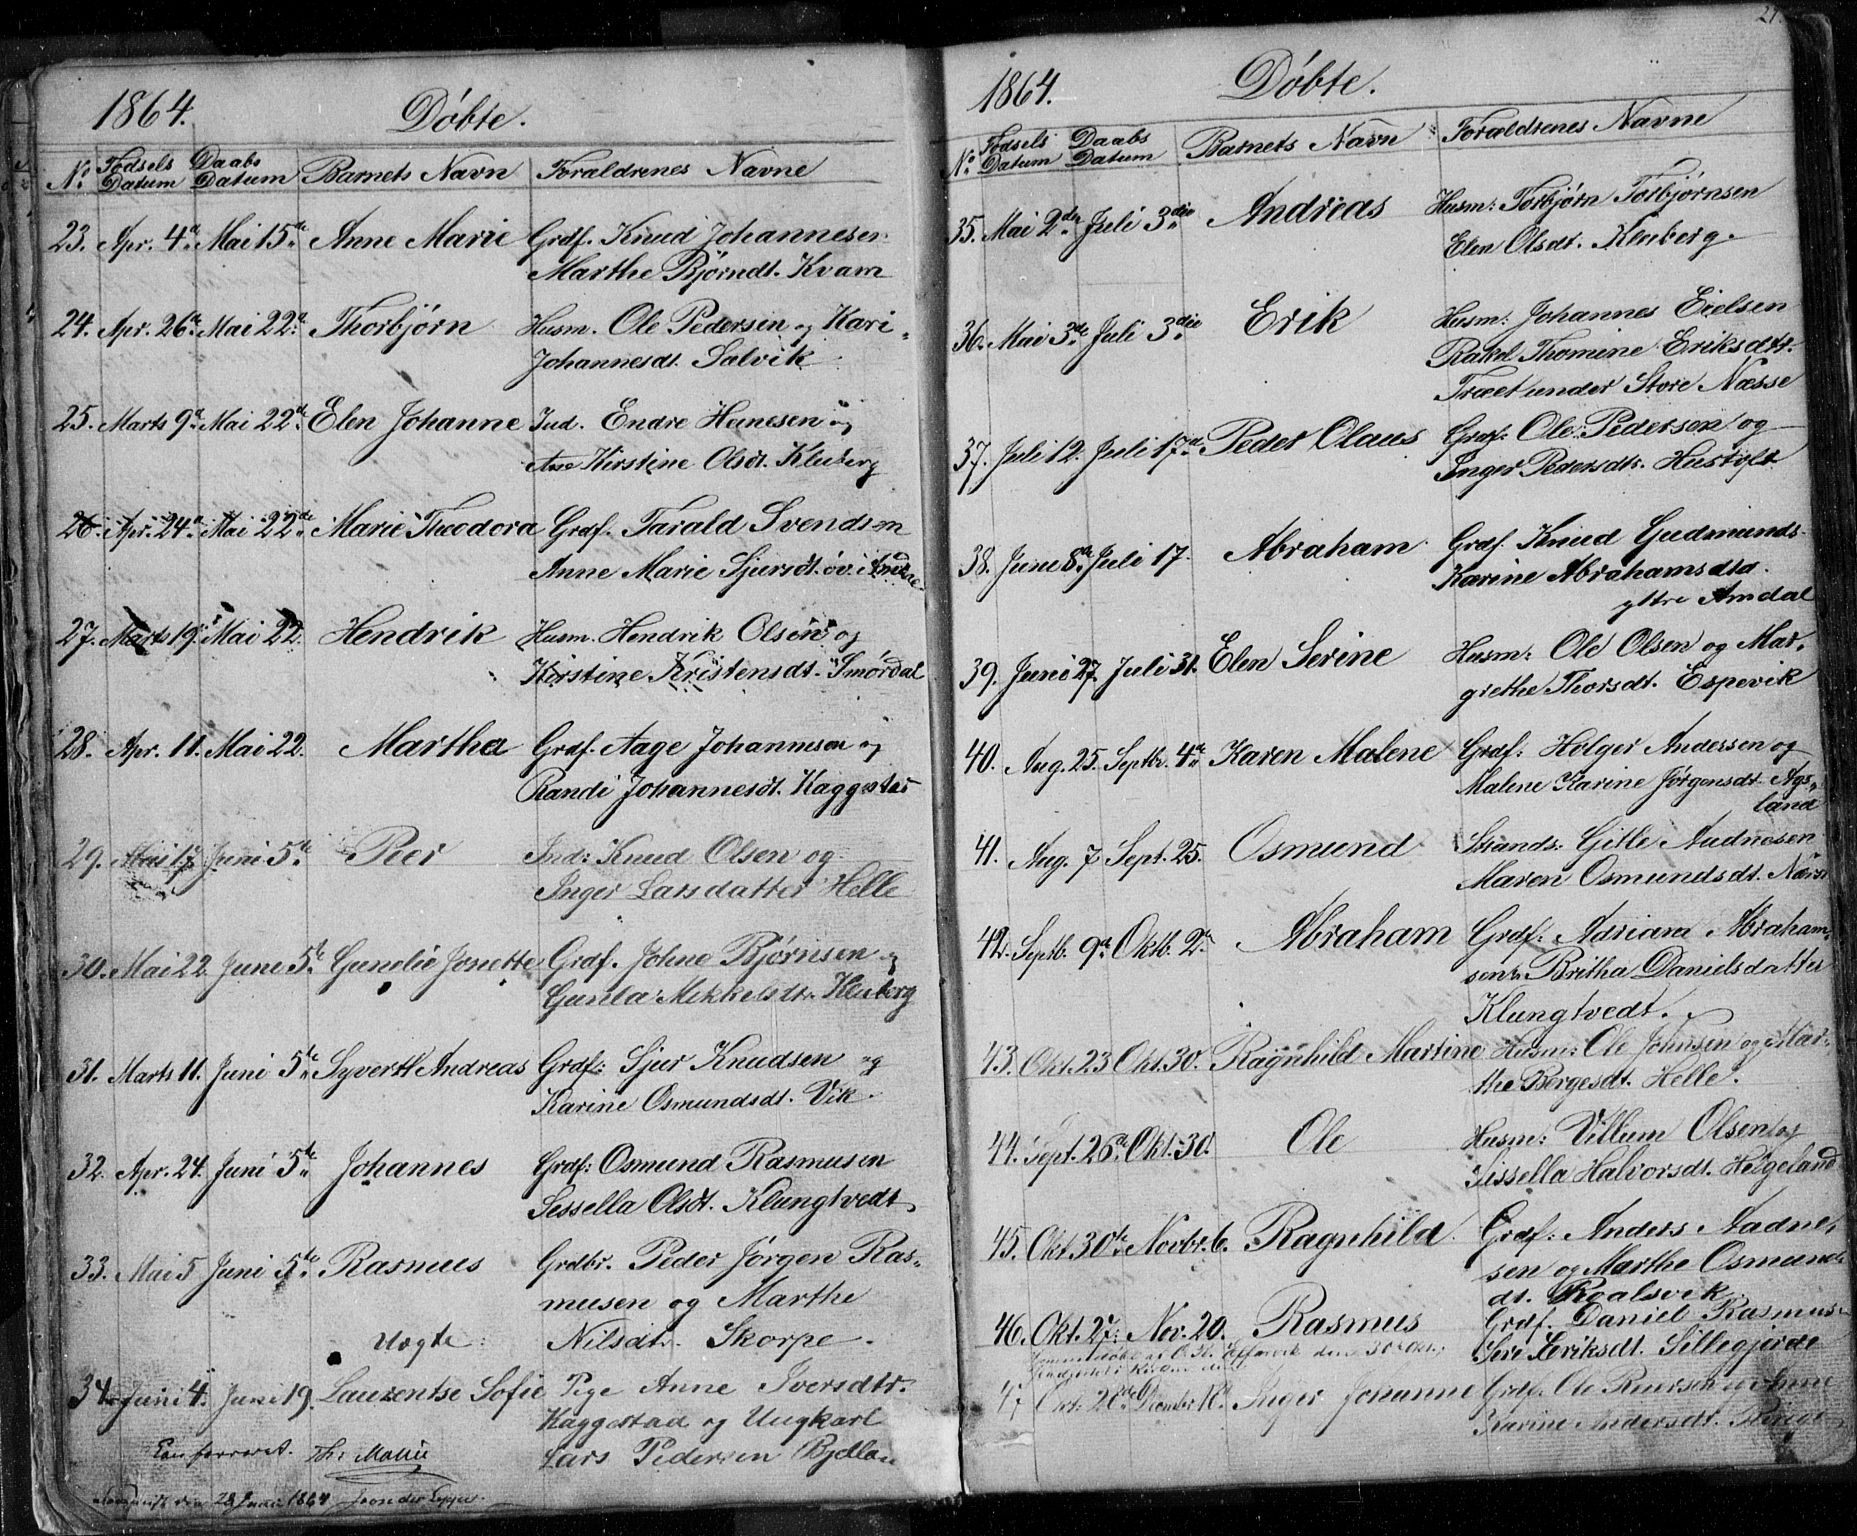 1864. Döbte.
No. Födsels Datum Daabs Datum Barnets Navn Forældrenes Navne
23. Apr. 4de Mai 15de Anne Marie Grdf. Knud Johannesen
Marthe Björndt. Kvam
24. Apr. 26de Mai 22de Thorbjörn Husm. Ole Pedersen og Kari
Johannesdt. Salvik
25. Marts 9de Mai 22de Elen Johanne Ind. Endre Hansen og
Ane Kirstine Olsdt. Kleiberg
26. Apr. 24de Mai 22de Marie Theodora Grdf. Tarald Svendsen
Anne Marie Sjursdt. öv.
27. Marts 19. Mai 22. Hendrik Husm. Hendrik Olsen og
Kirstine Kristensdt. Smördal
28. Apr. 11. Mai 22. Martha Grdf. Aage Johannesen og
Randi Johannesdt. Kaggestad
29. Mai 17. Juni 5te Peer Ind: Knud Olsen og
Inger Larsdatter Helle
30. Mai 22 June 5te Gunelie Jonette Grdf. Johne Björnsen og
Gunla Mikkelsdt. Kleiberg
31. Marts 11. Juni 5te Syvert Andreas Grdf: Sjur Knudsen og
Karine Osmundsdt. Vik.
32. Apr. 24. Juni 5te Johannes Grdf: Osmund Rasmusen
Sessella Olsdt. Klungtvedt
33. Mai 5 Juni 5te Rasmus Grdbr. Peder Jörgen Ras-
musen og Marthe
Uægte Nilsdt. Skorpe.
34. Juni 4. Juni 19. Laurentse Sofie Pige Anne Iversdtr.
Kaggestad og Ungkarl
Conferveret. Th: Lars Pedersen Bjellan
den 28 Juni 1864

1864. Döbte.
No. Födsels Datum Daabs Datum Barnets Navn Forældrenes Navne
35. Mai 2den Juli 3die Andreas Husm: Torbjørn Torbjørnsen
Elen Olsdt. Kleiberg.
36. Mai 3die Juli 3die Erik Husm: Johannes Eielsen
Rakel Thomine Eriksdtr.
Træet under Store Næsse
37. Juli 12. Juli 17de Peder Olaus Grdf: Ole Pedersen og
Inger Pedersdtr.
38. Juni 8de Juli 17. Abraham Grdf. Knud Gudmunds
Karine Abrahamsdtr.
yttre Amdal
39. Juni 27. Juli 31. Elen Serine Husm: Ole Olsen og Mar-
grethe Thorsdt. Espevik
40. Aug. 25. Septbr. 4de Karen Malene Grdf: Holger Andersen og
Malene Karine Jörgensdt. Ags-
land
41. Aug. 7 Sept. 25. Osmund Strands: Gitle Audnesen
Maren Osmundsdt.
42. Septb. 9de Oktb. 2den Abraham Grdf: Adrian Abraham-
sen Britha Danielsdatter
Klungtvedt.
43. Okt. 23 Okt. 30. Ragnhild Martine Husm: Ole Johnsen og Mar-
the Börgesdt. Helle.
44. Sept. 26de Okt. 30. Ole Husm: Villum Olsen og
Sissella Halvorsdt. Helgeland
45. Okt. 30te Novbr. 6. Ragnhild Grdf: Anders Aadne-
sen og Marthe Osmund-
dt. Roalsvik
46. Okt. 27. Nov. 20. Rasmus Grdf. Daniel Rasmus-
Siri Eriksdt. Sillegjerde
47 Okt. 28de Inger Johanne Grdf. Ole
Karine Andersdt.